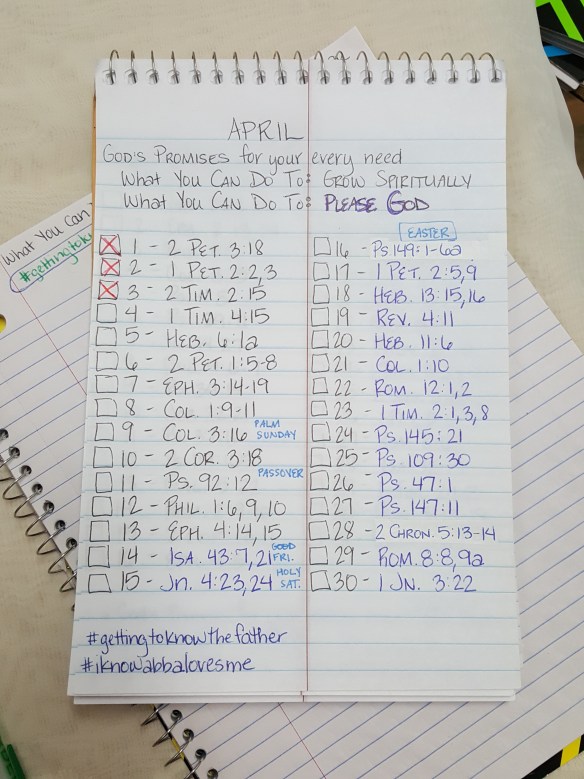 APRIL
GOD'S PROMISES for your every need
WHAT YOU CAN DO TO: GROW SPIRITUALLY
WHAT YOU CAN DO TO: PLEASE GOD
1 - 2 PET. 3:18
2 - 1 PET. 2:2,3
3 - 2 TIM. 2:15
4 - 1 TIM. 4:15
5 - HEB. 6:1a
6 - 2 PET. 1:5-8
7 - EPH. 3:14-19
8 - COL. 1:9-11
9 - COL. 3:16 PALM SUNDAY
10 - 2 COR. 3:18
11 - PS. 92:12 PASSOVER
12 - PHIL. 1:6,9,10
13 - EPH. 4:14,15
14 - ISA. 43:7,21 GOOD FRI.
15 - JN. 4:23,24 HOLY SAT.
EASTER
16 - PS. 149:1-6a
17 - 1 PET. 2:5,9
18 - HEB. 13:15,16
19 - REV. 4:11
20 - HEB. 11:6
21 - COL. 1:10
22 - ROM. 12:1,2
23 - 1 TIM. 2:1,3,8
24 - PS. 145:21
25 - PS. 109:30
26 - PS. 47:1
27 - PS. 147:11
28 - 2 CHRON. 5:13-14
29 - ROM. 8:8,9a
30 - 1 JN. 3:22
#gettingtoknowthefather
#iknowabbalovesme
What You Can
#gettingtokn